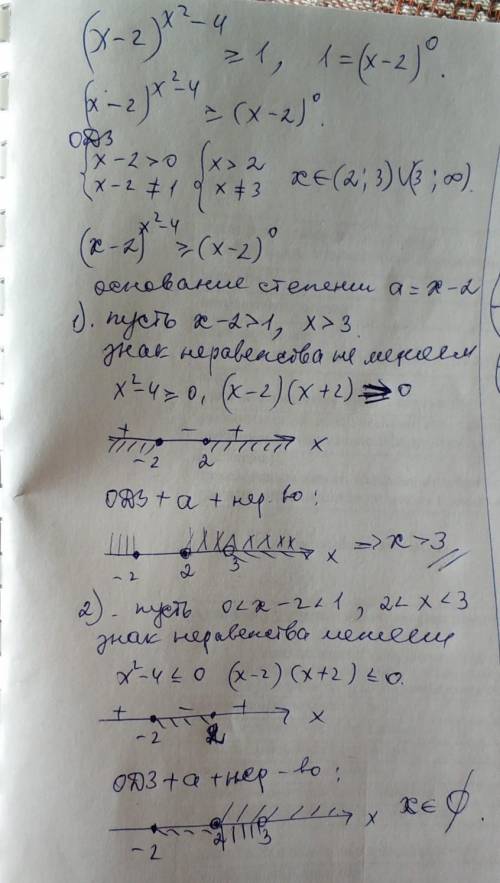 (x-2)^{x²-4} ≥ 1, 1=(x-2)^0.
(x-2)^{x²-4} ≥ (x-2)^0.
ОДЗ
{x-2>0 {x>2
{x-2≠1 {x≠3 x∈(2;3)∪(3;∞).
(x-2)^{x²-4} ≥ (x-2)^0
основание степени a=x-2
1). пусть x-2>1, x>3.
знак неравенства не меняем
x²-4≥0, (x-2)(x+2)≥0
+ - +
-2 2 x
ОДЗ+a+нер-во:
-2 2 3 x => x>3
2). пусть 0<x-2<1, 2<x<3
знак неравенства меняем
x²-4≤0 (x-2)(x+2)≤0.
+ - +
-2 2 x
ОДЗ+a+нер-во:
-2 2 3 x x∈∅.